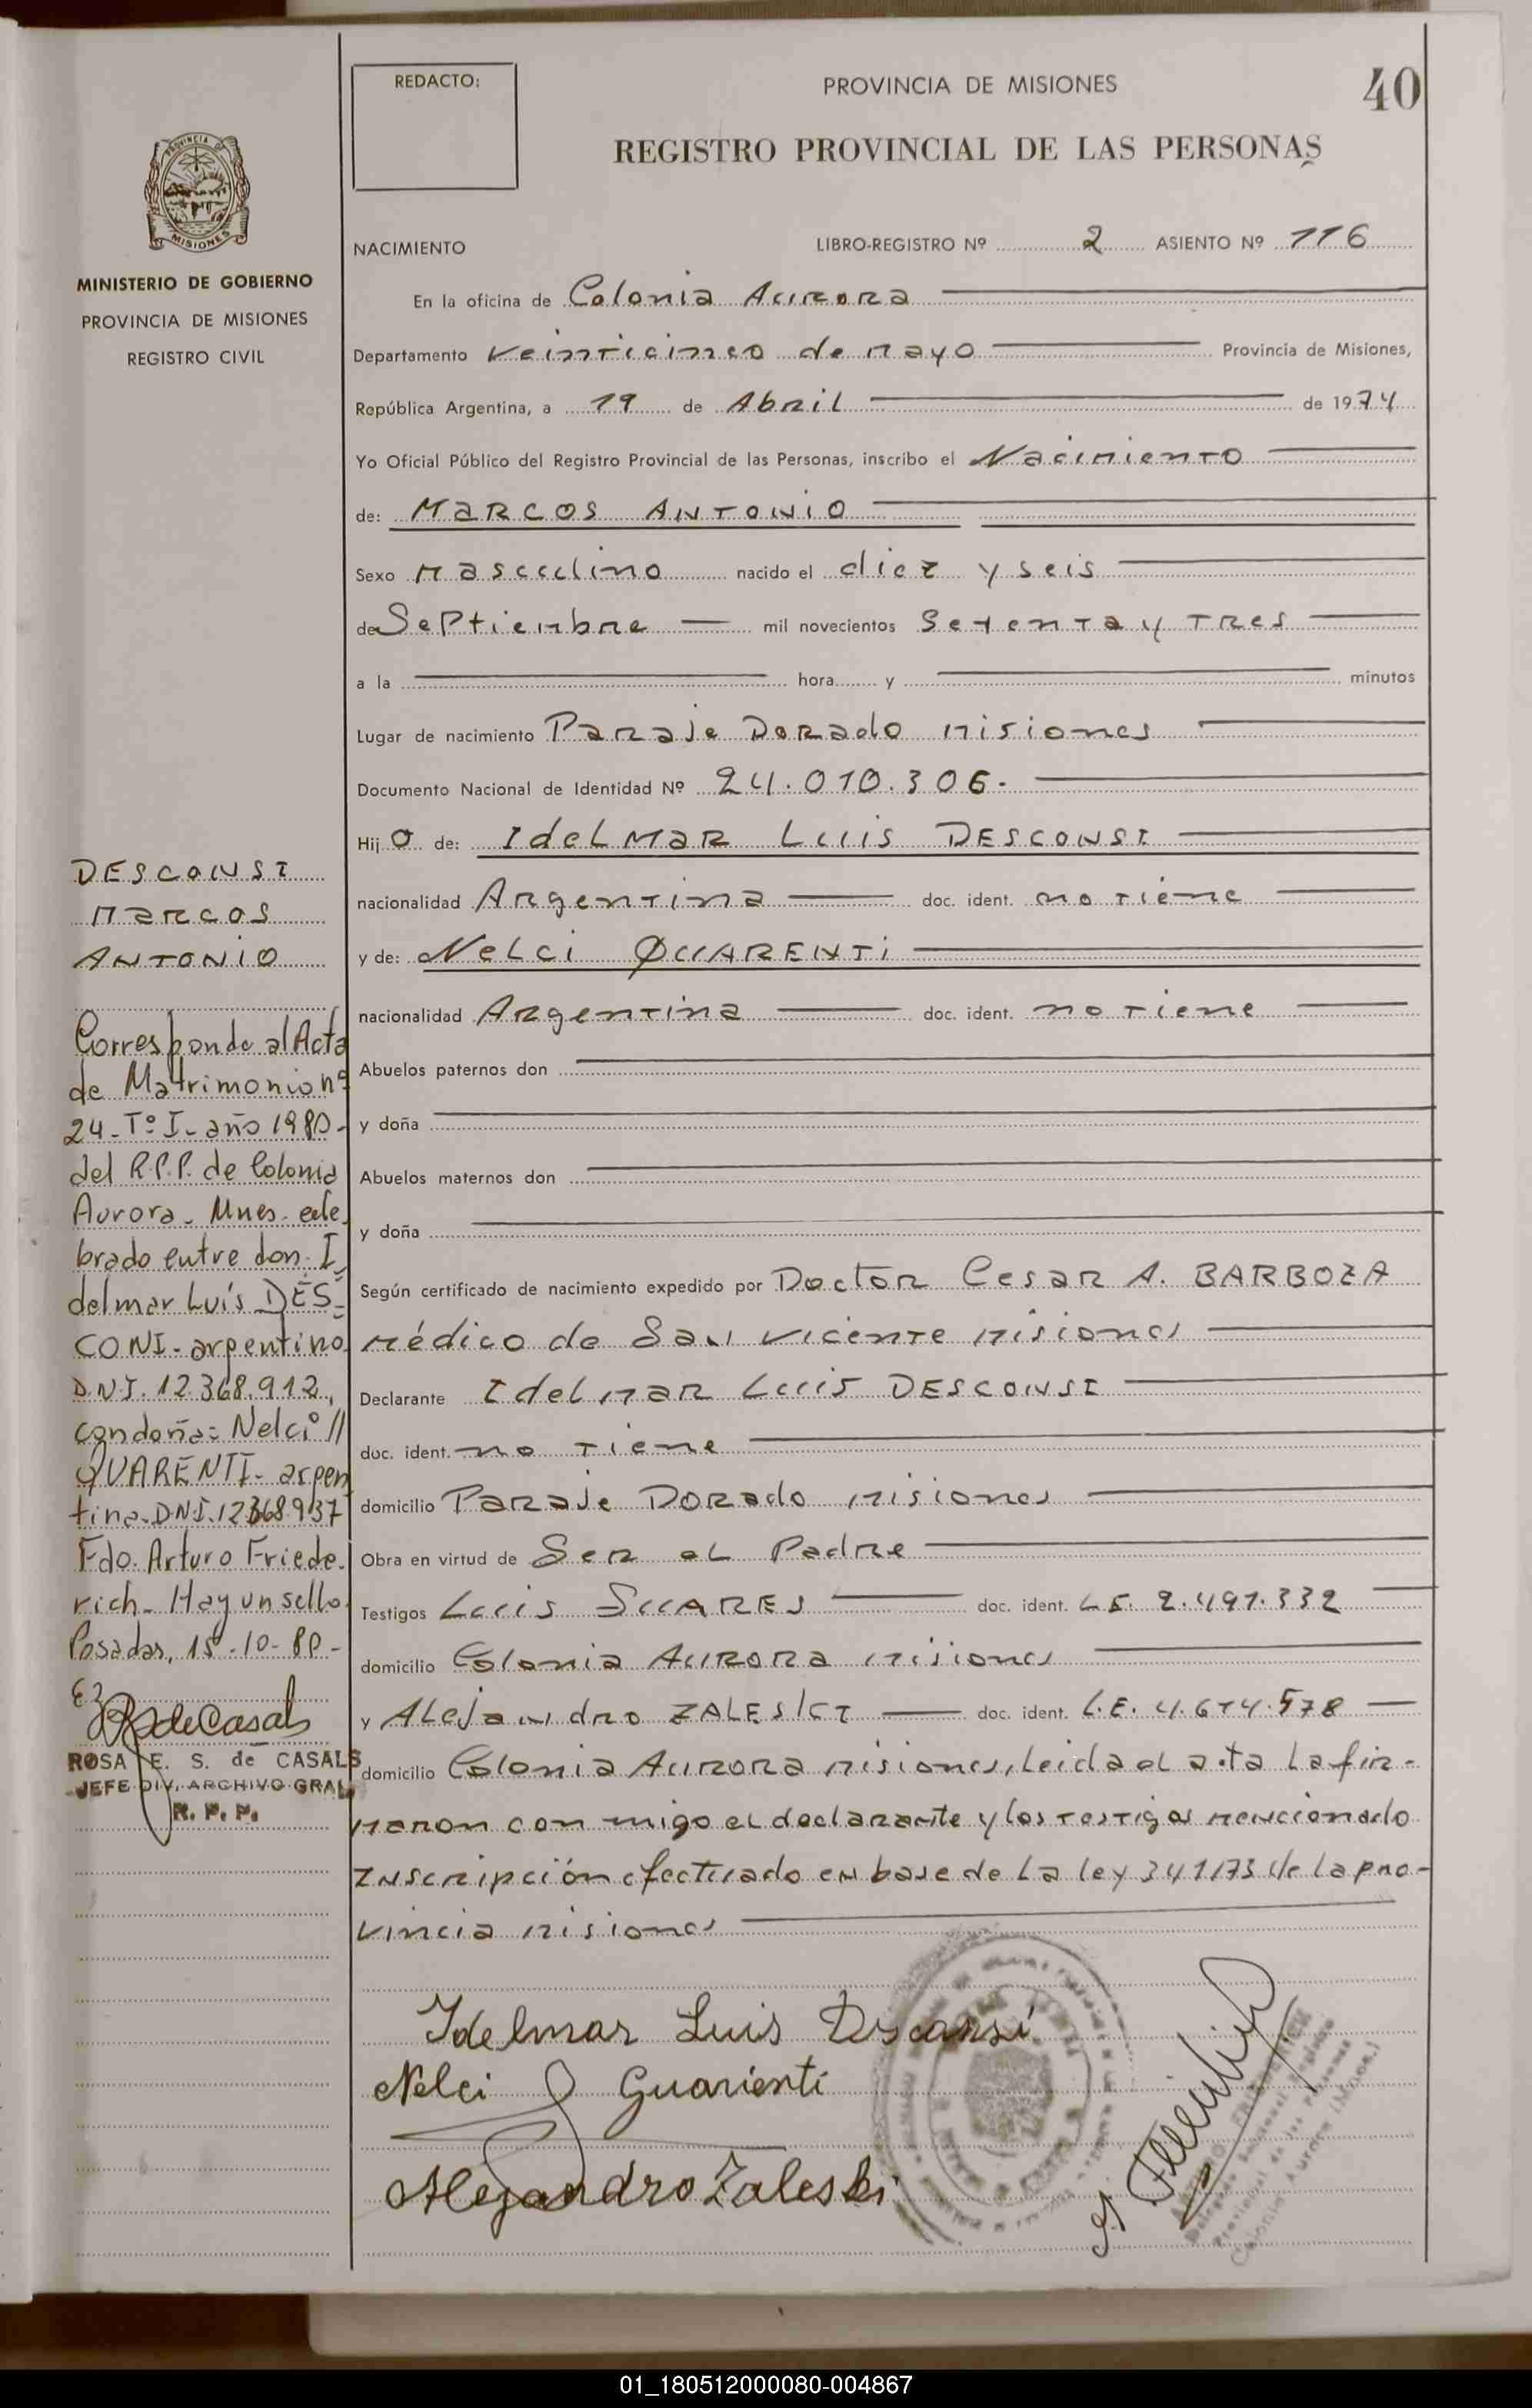 REDACTO:
PROVINCIA DE MISIONES
40
REGISTRO PROVINCIAL DE LAS PERSONAS
PROVINCIA DE
MISIONES
MINISTERIO DE GOBIERNO
PROVINCIA DE MISIONES
REGISTRO CIVIL
NACIMIENTO LIBRO-REGISTRO Nº 2 ASIENTO Nº 116
En la oficina de Colonia Aurora
Departamento Veinticinco de Mayo Provincia de Misiones,
República Argentina, a 19 de Abril de 1974
Yo Oficial Público del Registro Provincial de las Personas, inscribo el Nacimiento
de: MARCOS ANTONIO
Sexo Masculino nacido el diez y seis
de Septiembre mil novecientos Setenta y Tres
a la hora y minutos
Lugar de nacimiento Paraje Dorado Misiones
Documento Nacional de Identidad Nº 24.010.306.
Hijo de: Idelmar Luis DESCONSI
nacionalidad Argentina doc. ident. no tiene
y de: Nelci QUARENTI
nacionalidad Argentina doc. ident. no tiene
Abuelos paternos don
y doña
Abuelos maternos don
y doña
Según certificado de nacimiento expedido por Doctor Cesar A. BARBOZA
Médico de San Vicente Misiones
Declarante Idelmar Luis DESCONSI
doc. ident. no tiene
domicilio Paraje Dorado Misiones
Obra en virtud de Ser el Padre
Testigos Luis SUARES doc. ident. L.E. 2.491.332
domicilio Colonia Aurora Misiones
y Alejandro ZALESKI doc. ident. L.E. 4.614.578
domicilio Colonia Aurora Misiones, Leida el acta La fir-
maron con migo el declarante y los testigos mencionado
Inscripción efectuado en base de La Ley 341/73 de la pro-
vincia Misiones
Idelmar Luis Desconsi
Nelci Guarienti
Alejandro Zaleski
DESCONSI
MARCOS
ANTONIO
Corresponde al Acta
de Matrimonio nº
24-Tº I- año 1980-
del R.P.P. de Colonia
Aurora- Mnes- cele
brado entre don- I
delmar Luis DES=
CONI- argentino
D.N.I. 12.368.912,
con doña: Nelci //
QUARENTI- argen
tina-D.N.I. 12368937
Fdo. Arturo Friede-
rich- Hay un sello.
Posadas, 15-10-80-
ROSA E. S. de CASALS
JEFE DIV. ARCHIVO GRAL.
R. P. P.
01_180512000080-004867